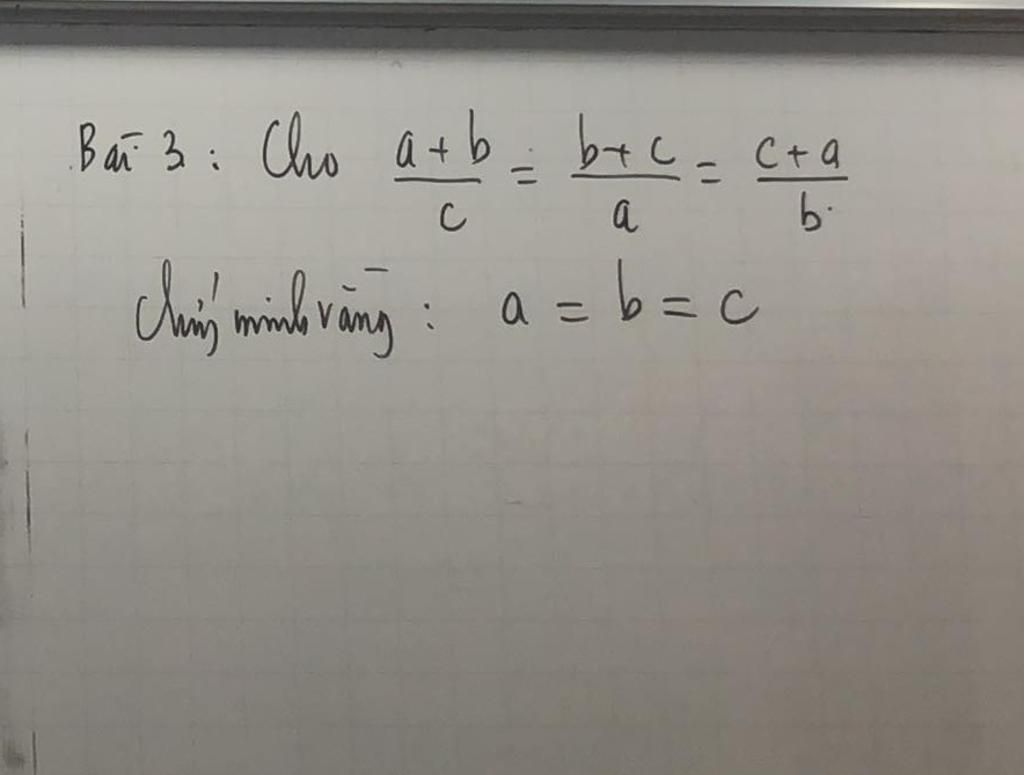 Bài 3 : Cho \frac{a+b}{c} = \frac{b+c}{a} = \frac{c+a}{b}
chứng minh rằng : a = b = c